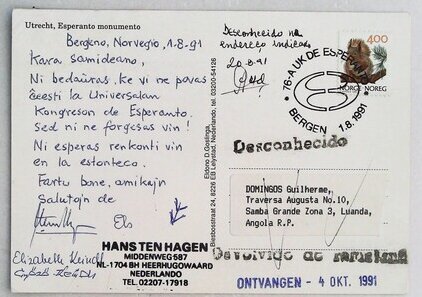 Utrecht, Esperanto monumento
Bergeno, Norvegio, 1.8-91
Kara samideano,
Ni bedaŭras ke vi ne povas
ĉeesti la Universalan
Kongreson de Esperanto.
Sed ni ne forgesas vin!
Ni esperas renkonti vin
en la estonteco.
Fartu bone, amikajn
salutojn de
Els
Elizabeth
HANS TEN HAGEN
MIDDENWEG 587
NL-1704 BH HEERHUGOWAARD
NEDERLANDO
TEL. 02207-17918
Eldono D. Goslinga,
Biesbosstraat 24, 8226 EB Lelystad, Nederlando, tel. 03200-54126
Desconhecido na
endereço indicado
20-8-91
400
NORGE NOREG
76-A UK DE ESPERANTO
BERGEN 1.8.1991
Desconhecido
DOMINGOS Guilherme,
Traversa Augusta No.10,
Samba Grande Zona 3, Luanda,
Angola R.P.
Devolvido ao remetente
ONTVANGEN - 4 OKT. 1991